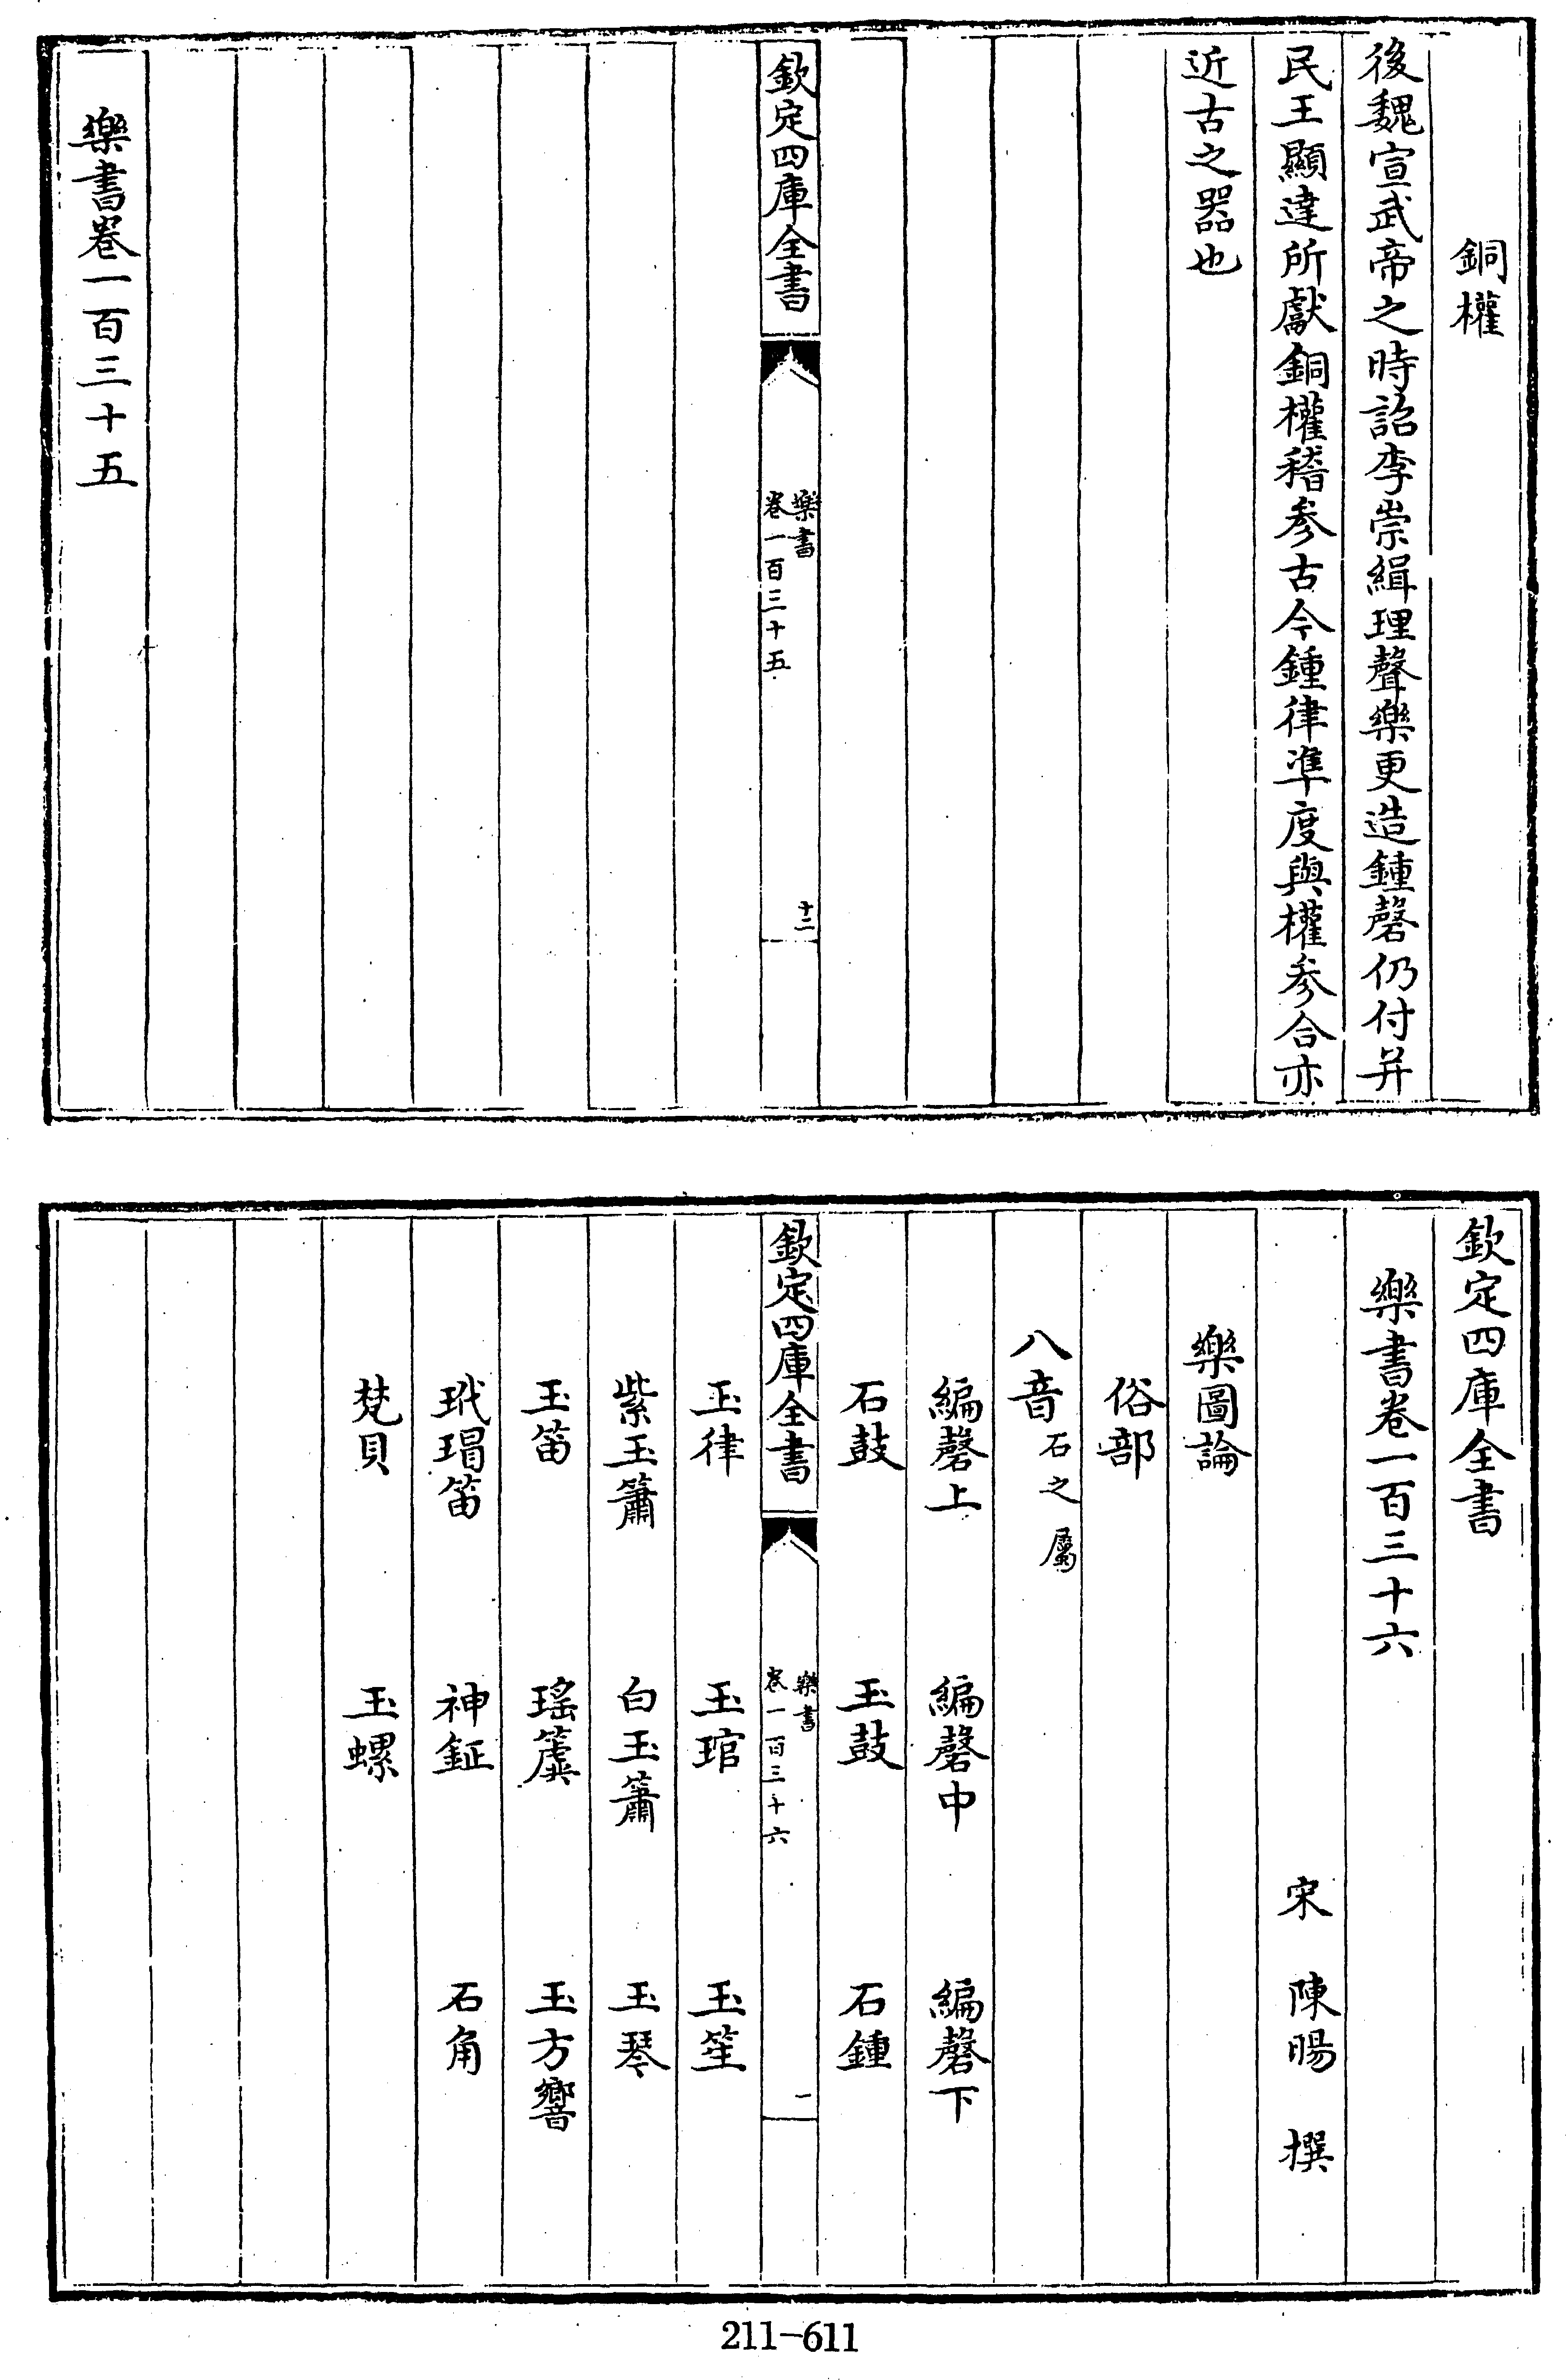 銅權
後魏宣武帝之時詔李崇緝理聲樂更造鍾磬仍付并
民王顯達所獻銅權稽參古今鍾律準度與權參合亦
近古之器也
欽定四庫全書
樂書
卷一百三十五
十二
樂書卷一百三十五
欽定四庫全書
樂書卷一百三十六
宋 陳暘 撰
樂圖論
俗部
八音石之屬
編磬上 編磬中 編磬下
石鼓 玉鼓 石鍾
欽定四庫全書
樂書
卷一百三十六
一
玉律 玉琯 玉笙
紫玉簫 白玉簫 玉琴
玉笛 瑤簴 玉方響
玳瑁笛 神鉦 石角
梵貝 玉螺
211-611